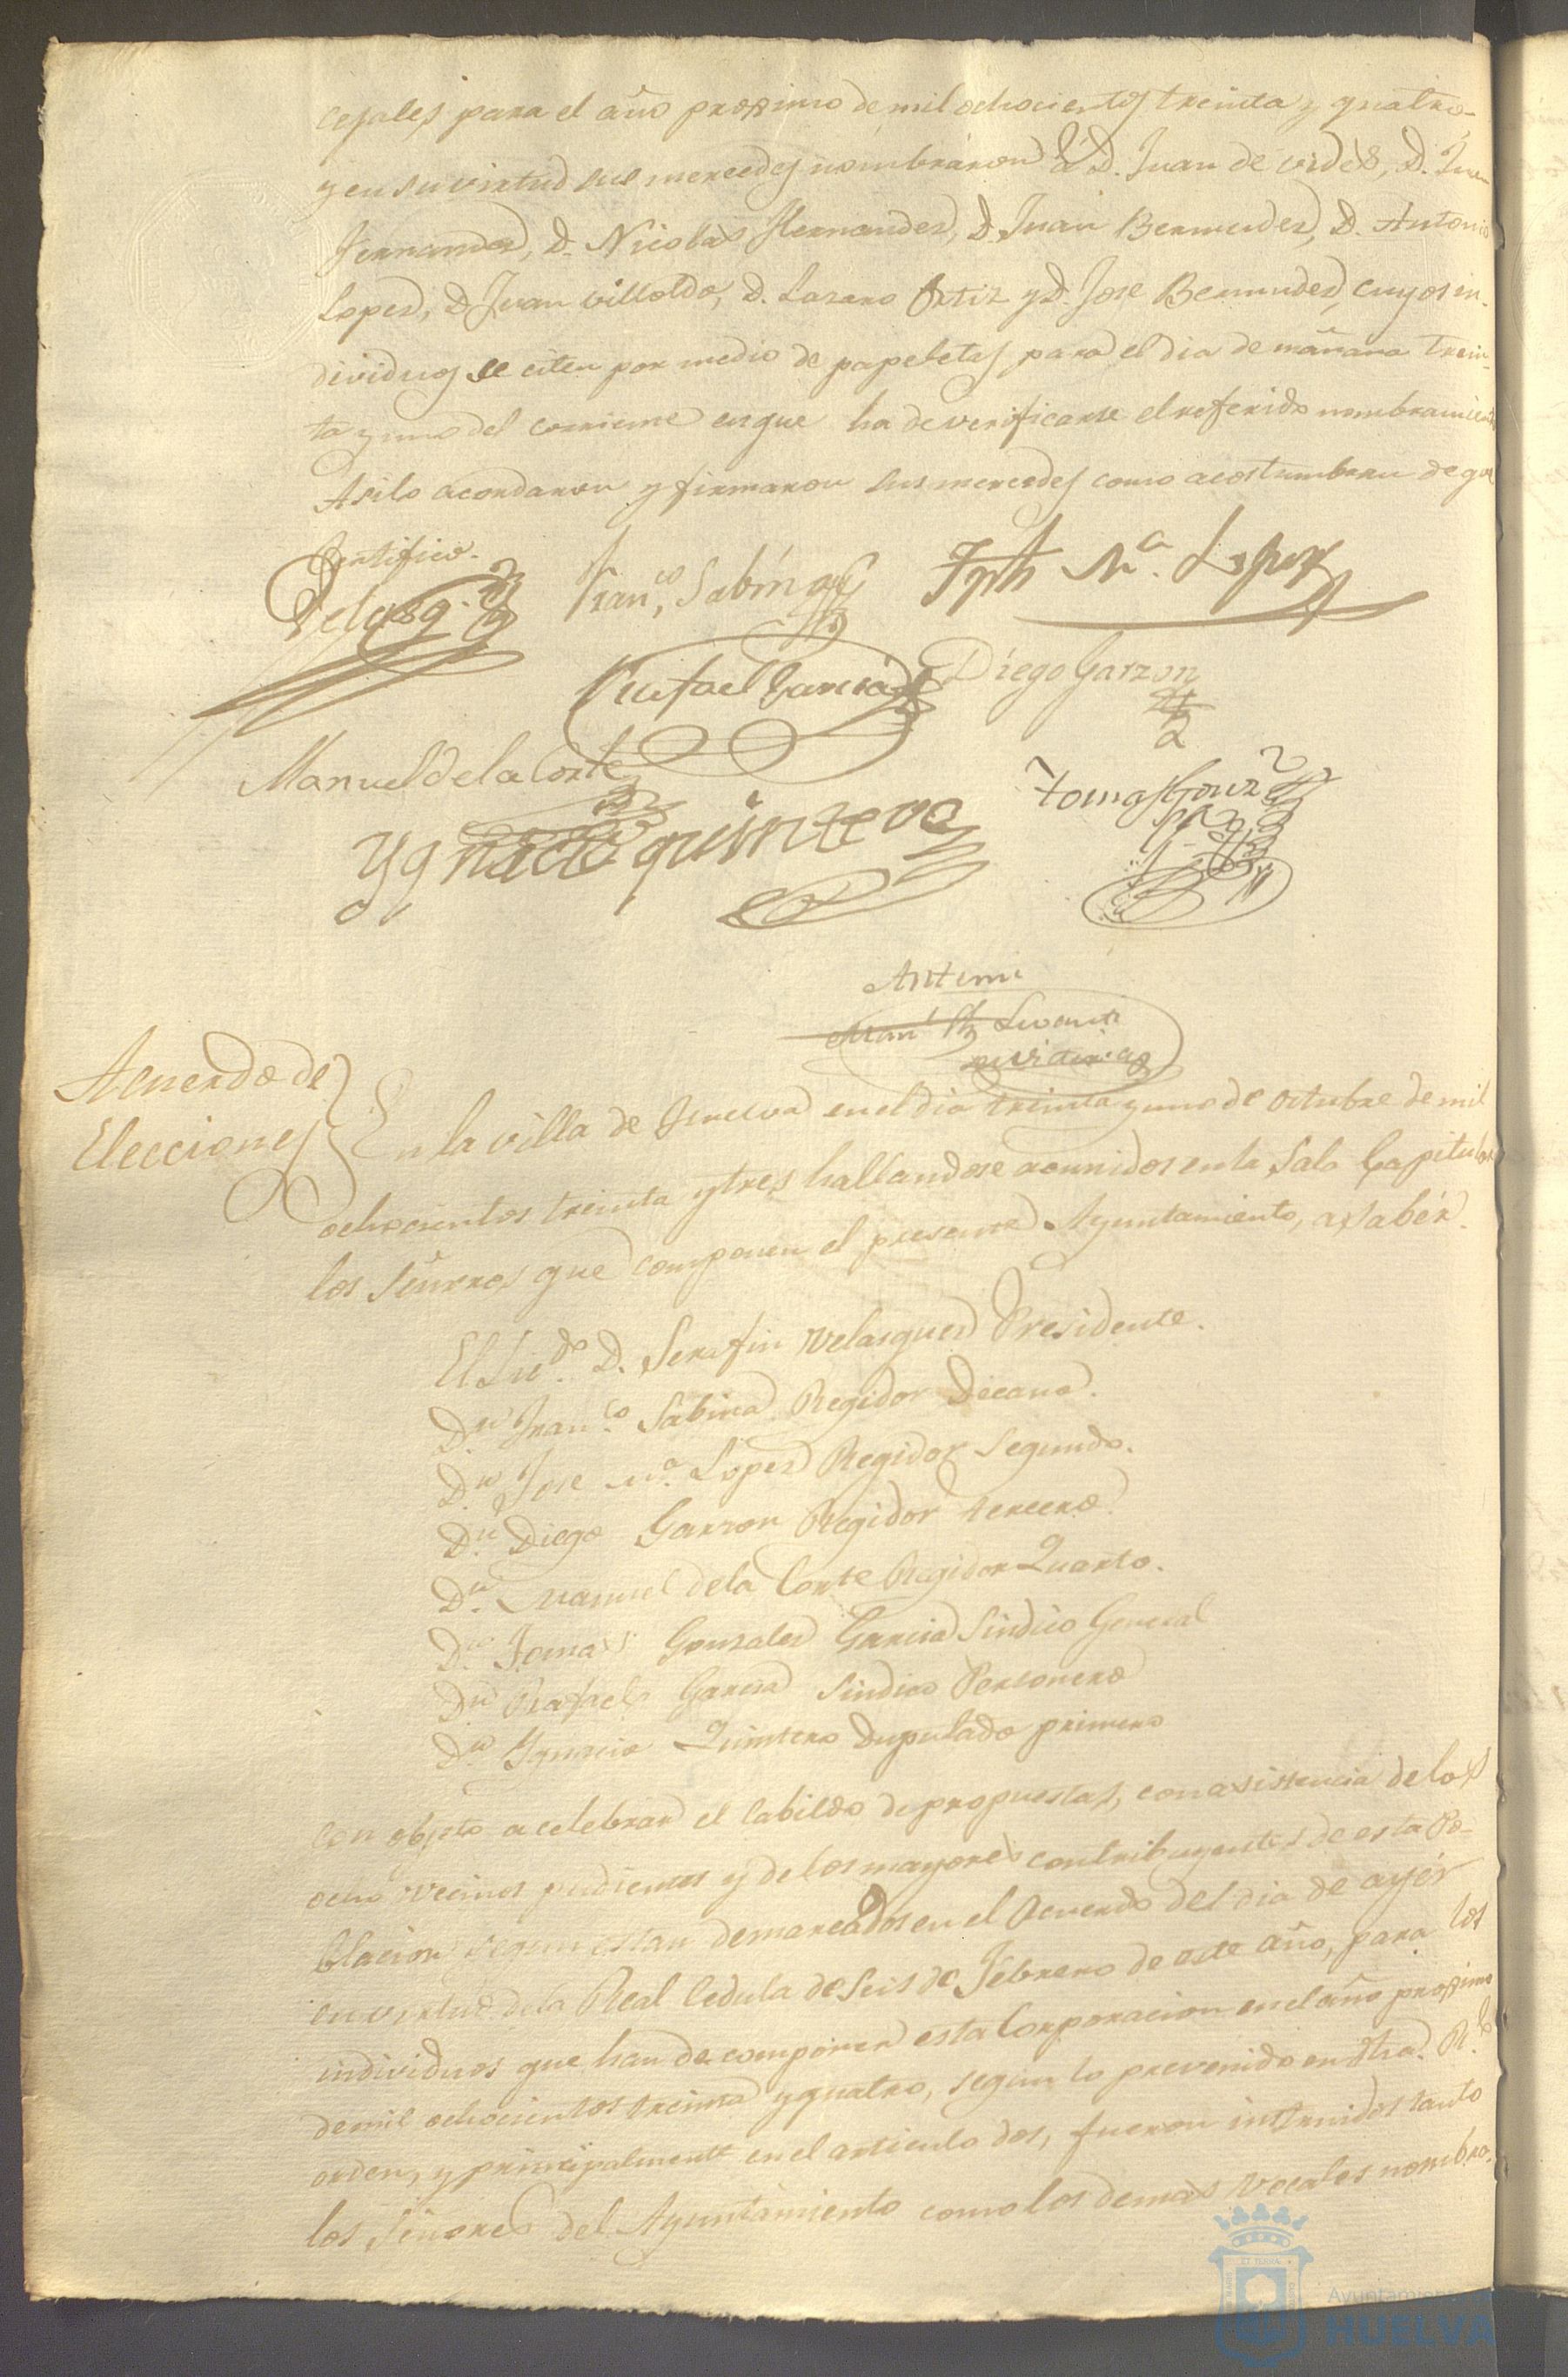 cejales para el año proximo de mil ochocientos treinta y quatro
y en su virtud sus mercedes nombraron á D. Juan de vides, D. Juan
Fernandez, D. Nicolas Hernandez, D. Juan Bermudez, D. Antonio
Lopez, D. Juan Villoldo, D. Lazaro Ortiz y D. Jose Bermudez, cuyos in-
dividuos se citen por medio de papeletas para el dia de mañana trein-
ta y uno del corriente en que ha de verificarse el referido nombramiento
Asi lo acordaron y firmaron sus mercedes como acostumbran de que
Certifico.
Velasq.z
Fran.co Sabina
Jph M.a Lopez
Rafael Garcia
Diego Garzon
Manuel de la Corte
Tomas Gonz.z
Ygnacio quintero
Antemi
Acuerdo de
Elecciones
En la villa de Huelva en el dia treinta y uno de octubre de mil
ochocientos treinta y tres hallandose reunidos en la Sala Capitular
los Señores que componen el presente Ayuntamiento, a saber.
El Lic.do D. Serafin Velasquez Presidente.
D.n Fran.co Sabina Regidor Decano.
D.n Jose M.a Lopez Regidor Segundo.
D.n Diego Garzon Regidor tercero.
D.n Manuel de la Corte Regidor Quarto.
D.n Tomas Gonzales Garcia Sindico General
D.n Rafael Garcia Sindico Personero
D.n Ygnacio Quintero Diputado primero
con objeto a celebrar el Cabildo de propuestas, con asistencia de los
ocho vecinos pudientes y de los mayores contribuyentes de esta Po-
blacion segun estan demarcados en el Acuerdo del dia de ayer
en virtud de la Real Cedula de Seis de Febrero de este año, para los
individuos que han de componer esta Corporacion en el año proximo
de mil ochocientos treinta y quatro, segun lo prevenido en dha. R.l
orden, y principalmente en el articulo dos, fueron instruidos tanto
los Señores del Ayuntamiento como los demas Vocales nombra-
Ayuntamiento
HUELVA